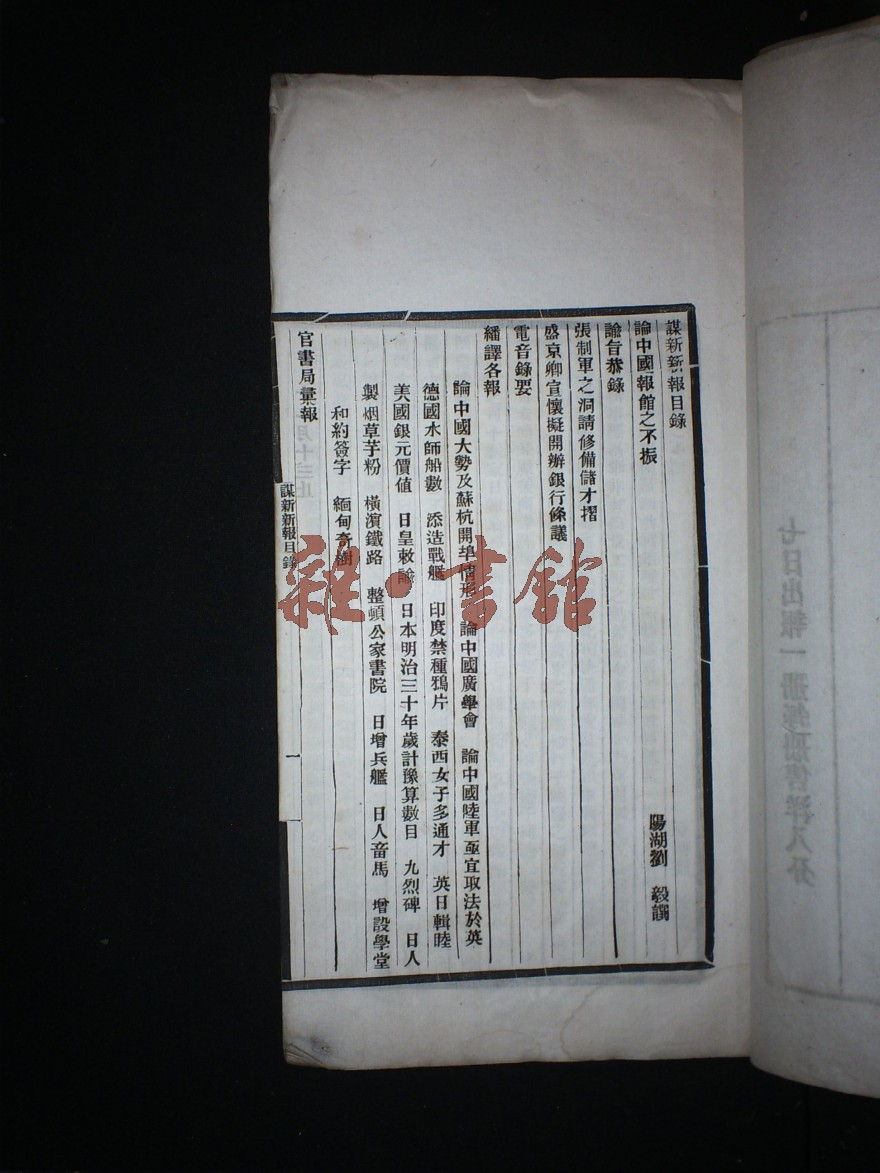 謀新新報目錄
論中國報館之不振 陽湖劉 毅譔
諭旨恭錄
張制軍之洞請修備儲才摺
盛京卿宣懷擬開辦銀行條議
電音錄要
繙譯各報
論中國大勢及蘇杭開埠情形 論中國廣學會 論中國陸軍亟宜取法於英
德國水師船數 添造戰艦 印度禁種鴉片 泰西女子多通才 英日輯睦
美國銀元價值 日皇敕諭 日本明治三十年歲計豫算數目 九烈碑 日人
製烟草芋粉 橫濱鐵路 整頓公家書院 日增兵艦 日人畜馬 增設學堂
和約簽字 緬甸奇樹
官書局彙報
謀新新報目錄
一
雜·書館
七日出報一册每册售洋八分